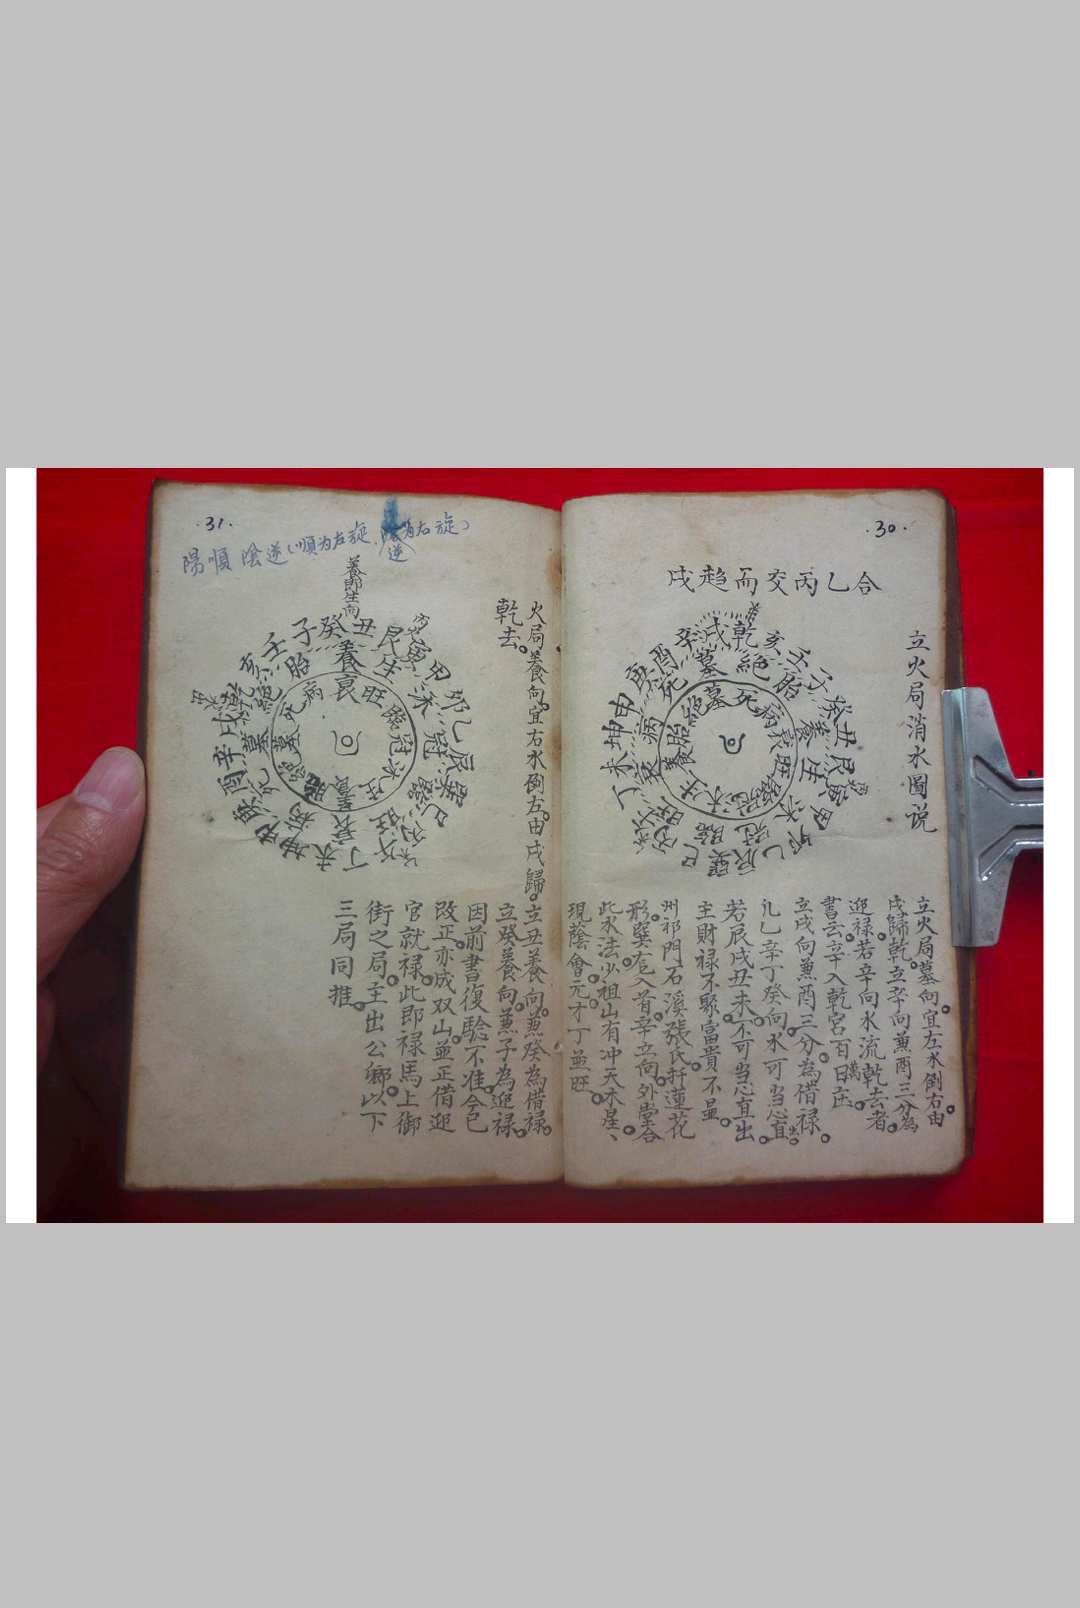 .30.
合乙丙交而趋戌
立火局消水圖说
立火局墓向宜左水倒右由
戌歸乾立辛向兼酉三分為
迎禄若辛向水流乾去者
書云辛入乾宮百萬庄
立戌向兼酉三分為借禄
凡乙辛丁癸向水可当心直出
若辰戌丑未不可当心直出
主財禄不聚富貴不显
州祁門石溪張氏扦蓮花
形巽龙入首辛立向外堂合
此水法少祖山有冲天木星
現蔭會元才丁並旺
乾戌辛酉庚申坤未丁丙巳巽辰乙卯甲寅艮丑癸子壬亥
墓絕胎養生沐冠臨旺衰病死
墓死病衰旺臨冠沐生養胎絕
.31.
陽順 陰逆(順为左旋、逆为右旋)
養即生向
癸丑艮寅甲卯乙辰巽巳丙丁未坤申庚酉辛戌乾亥壬子
養生沐冠臨旺衰病死墓絕胎
衰旺臨冠沐生養胎絕墓死病
火局養向宜右水倒左由戌歸
乾去
立丑養向兼癸為借禄
立癸養向兼子為迎禄
因前書復驗不准今已
改正亦成双山並正借迎
官就禄此即禄馬上御
街之局主出公卿以下
三局同推